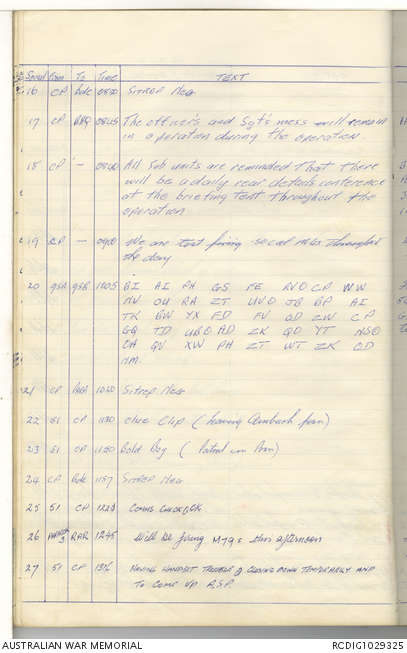 Serial From To Time TEXT
16 CP Bde 0800 Sitrep Neg
17 CP BHQ 0845 The officer's and Sgt's mess will remain
in operation during the operation.
18 CP - 0840 All Sub units are reminded That There
will be a daily rear details conference
at the briefing tent Throughout the
operation
19 CP - 0900 We are test firing Throughout
the day
20 9SR 9SR 1005 BI AI PH GS FE RVO CP WW
NV OU RA ZT UVO JQ BP AI
TK BW YX FD FV OD ZW CP
GQ TD UBO AD ZK QD YT NSO
OH QV XW PH ZT WT ZK CD
MM.
21 CP 1020 Sitrep Neg
22 51 CP 1130 Blue Clip (leaving Ambush posn)
23 51 CP 1150 Bold Boy ( Patrol in Posn)
24 CP Bde 1157 Sitrep Neg
25 51 CP 1228 Comms Check OK
26 3 RAR 1245 Will be firing M79s this afternoon
27 51 CP 1316 Having handset trouble & closing down temporarily and
to come up ASP.
AUSTRALIAN WAR MEMORIAL RCDIG1029325